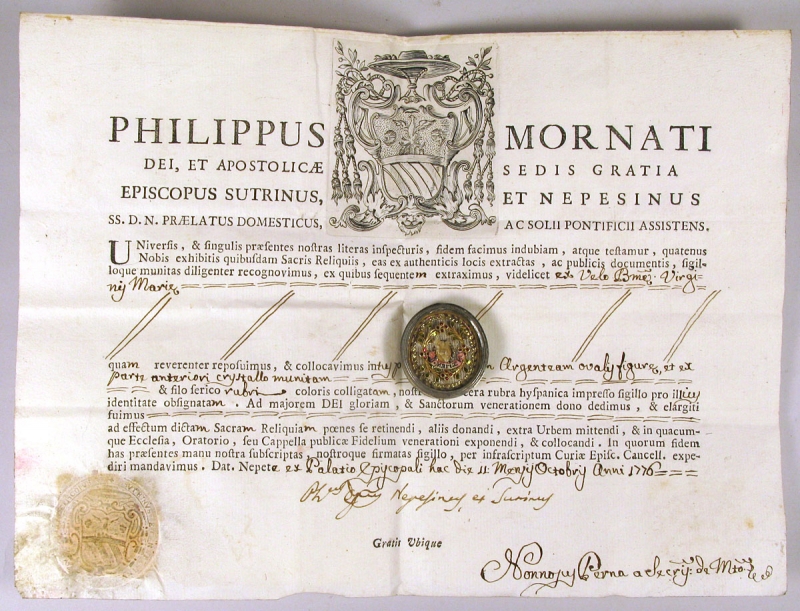 PHILIPPUS MORNATI
DEI, ET APOSTOLICÆ SEDIS GRATIA
EPISCOPUS SUTRINUS, ET NEPESINUS
SS. D. N. PRÆLATUS DOMESTICUS, AC SOLII PONTIFICII ASSISTENS.
UNiversis, & singulis præsentes nostras literas inspecturis, fidem facimus indubiam, atque testamur, quatenus
Nobis exhibitis quibusdam Sacris Reliquiis, eas ex authenticis locis extractas, ac publicis documentis, sigil-
loque munitas diligenter recognovimus, ex quibus sequentem extraximus, videlicet ex Velo Bmæ. Virgi-
nis Mariæ
quam reverenter reposuimus, & collocavimus in Argenteam ovalis figuræ, et ex
parte anteriori crystallo munitam
& filo serico rubri coloris colligatam, cera rubra hyspanica impresso sigillo pro illius
identitate obsignatam. Ad majorem DEI gloriam, & Sanctorum venerationem dono dedimus, & elargiti
fuimus
ad effectum dictam Sacram Reliquiam pœnes se retinendi, aliis donandi, extra Urbem mittendi, & in quacum-
que Ecclesia, Oratorio, seu Cappella publicæ Fidelium venerationi exponendi, & collocandi. In quorum fidem
has præsentes manu nostra subscriptas, nostroque firmatas sigillo, per infrascriptum Curiæ Episc. Cancell. expe-
diri mandavimus. Dat. Nepete ex Palatio Episcopali hac die 11 Mensis Octobris Anni 1776
Nepesinus et Sutrinus
Gratis Ubique
Nonnosus Perna